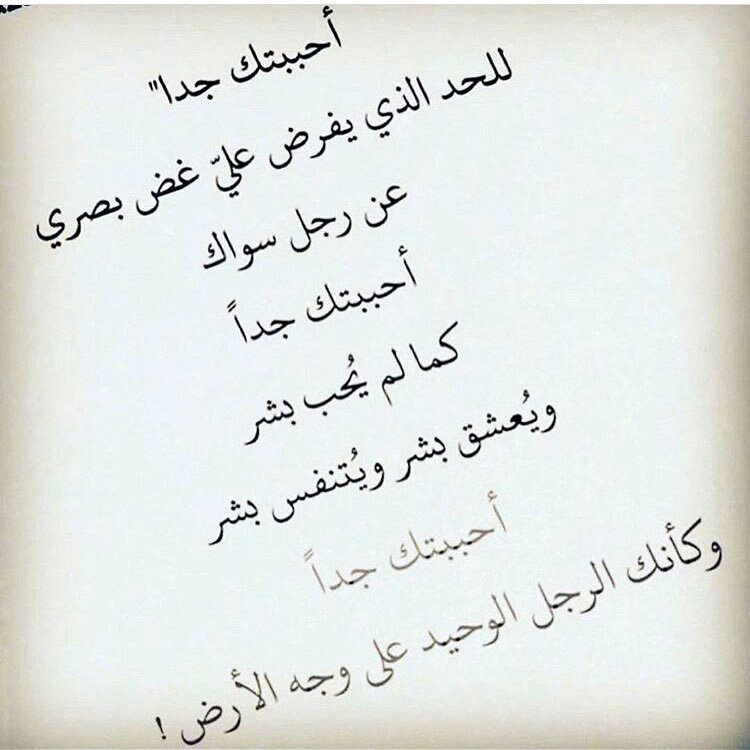 أحببتك جدا"
للحد الذي يفرض عليّ غض بصري
عن رجل سواك
أحببتك جداً
كما لم يُحب بشر
ويُعشق بشر ويُتنفس بشر
أحببتك جداً
وكأنك الرجل الوحيد على وجه الأرض !